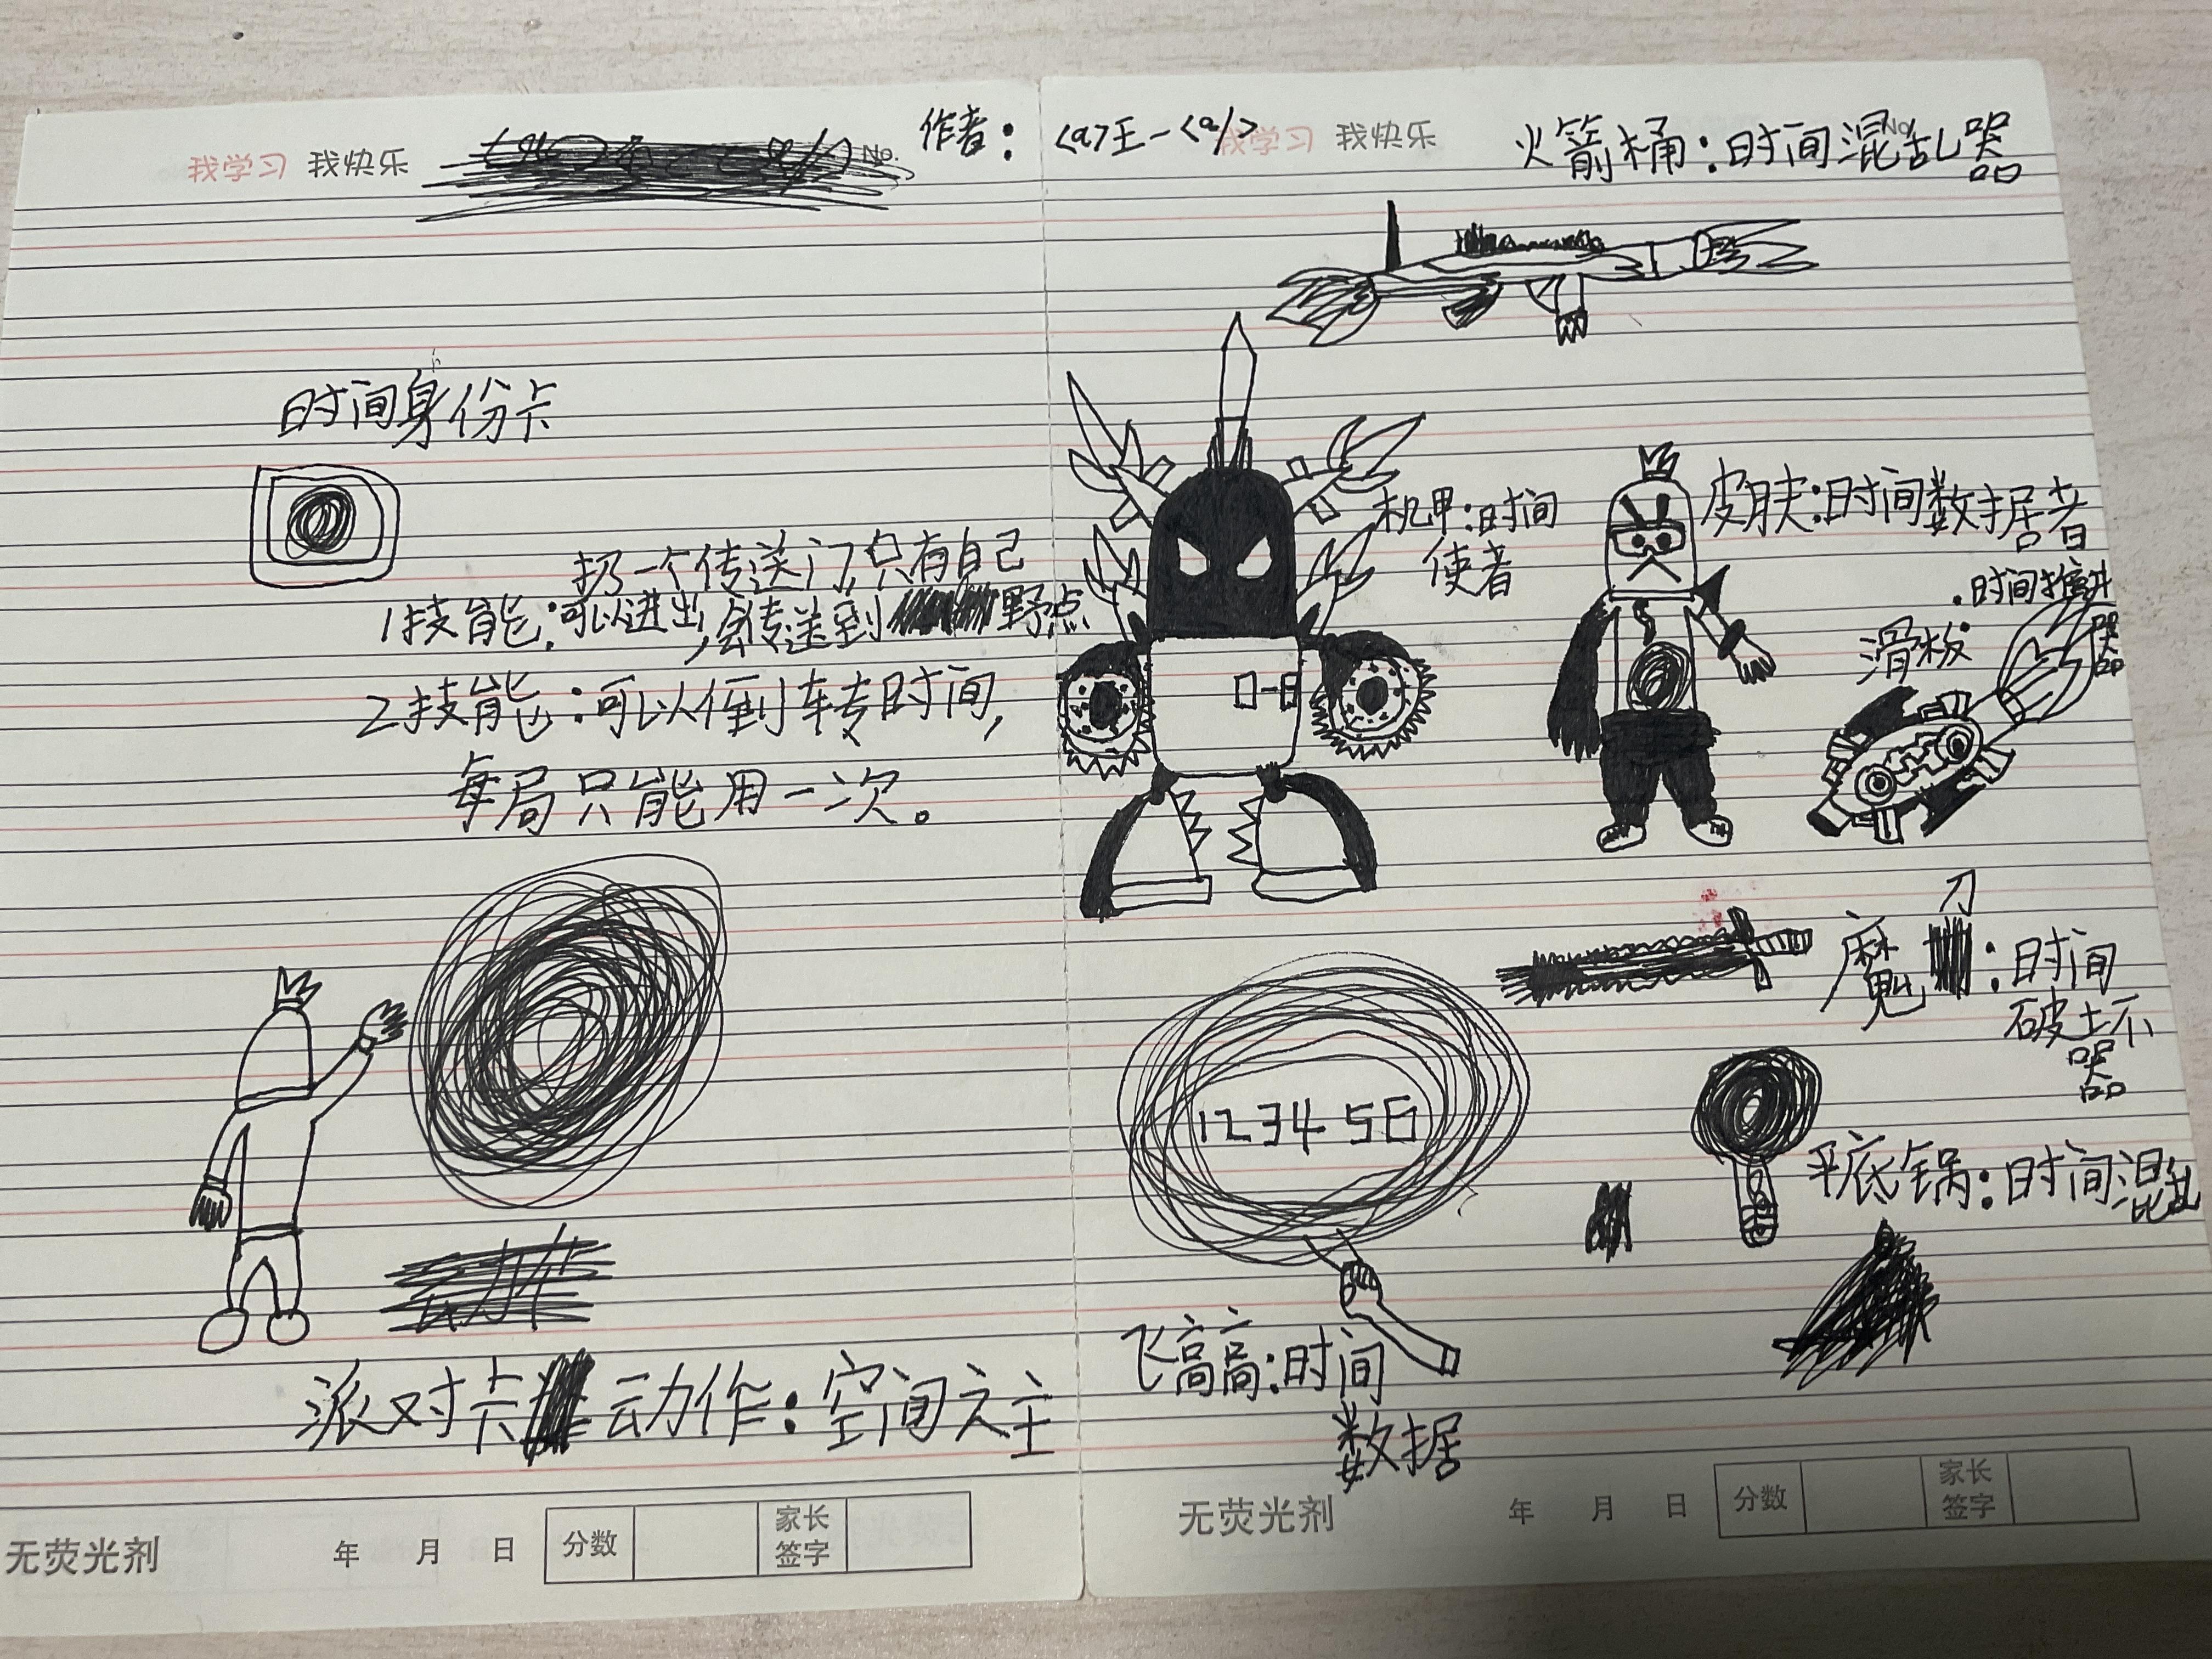 我学习 我快乐 No.
作者：<a>王一<a/>
我学习 我快乐 No.
火箭桶：时间混乱器
时间身份卡
扔一个传送门,只有自己
1技能：可以进出,会传送到野点
2技能：可以倒转时间,
每局只能用一次。
派对卡动作：空间之主
机甲：时间
使者
0-8
皮肤：时间数据者
滑板：时间推进器
魔刀：时间
破坏
器
平底锅：时间混乱
123456
飞高高：时间
数据
无荧光剂 年 月 日 分数 家长
签字
无荧光剂 年 月 日 分数 家长
签字